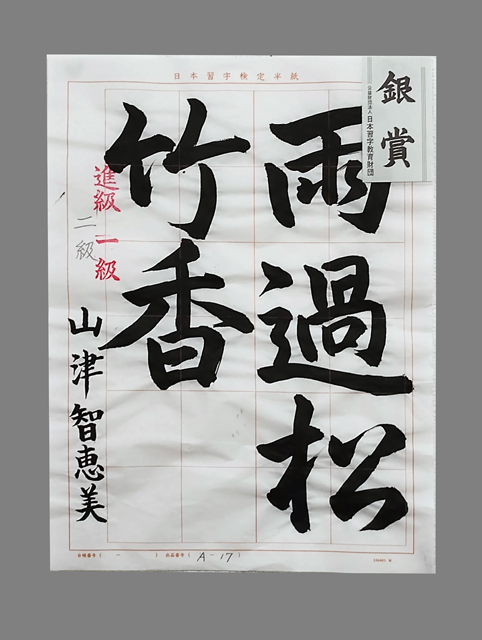 日本習字検定半紙
銀賞
公益財団法人 日本習字教育財団
雨過松
竹香
進級 一級
二級
山津智恵美
A-17